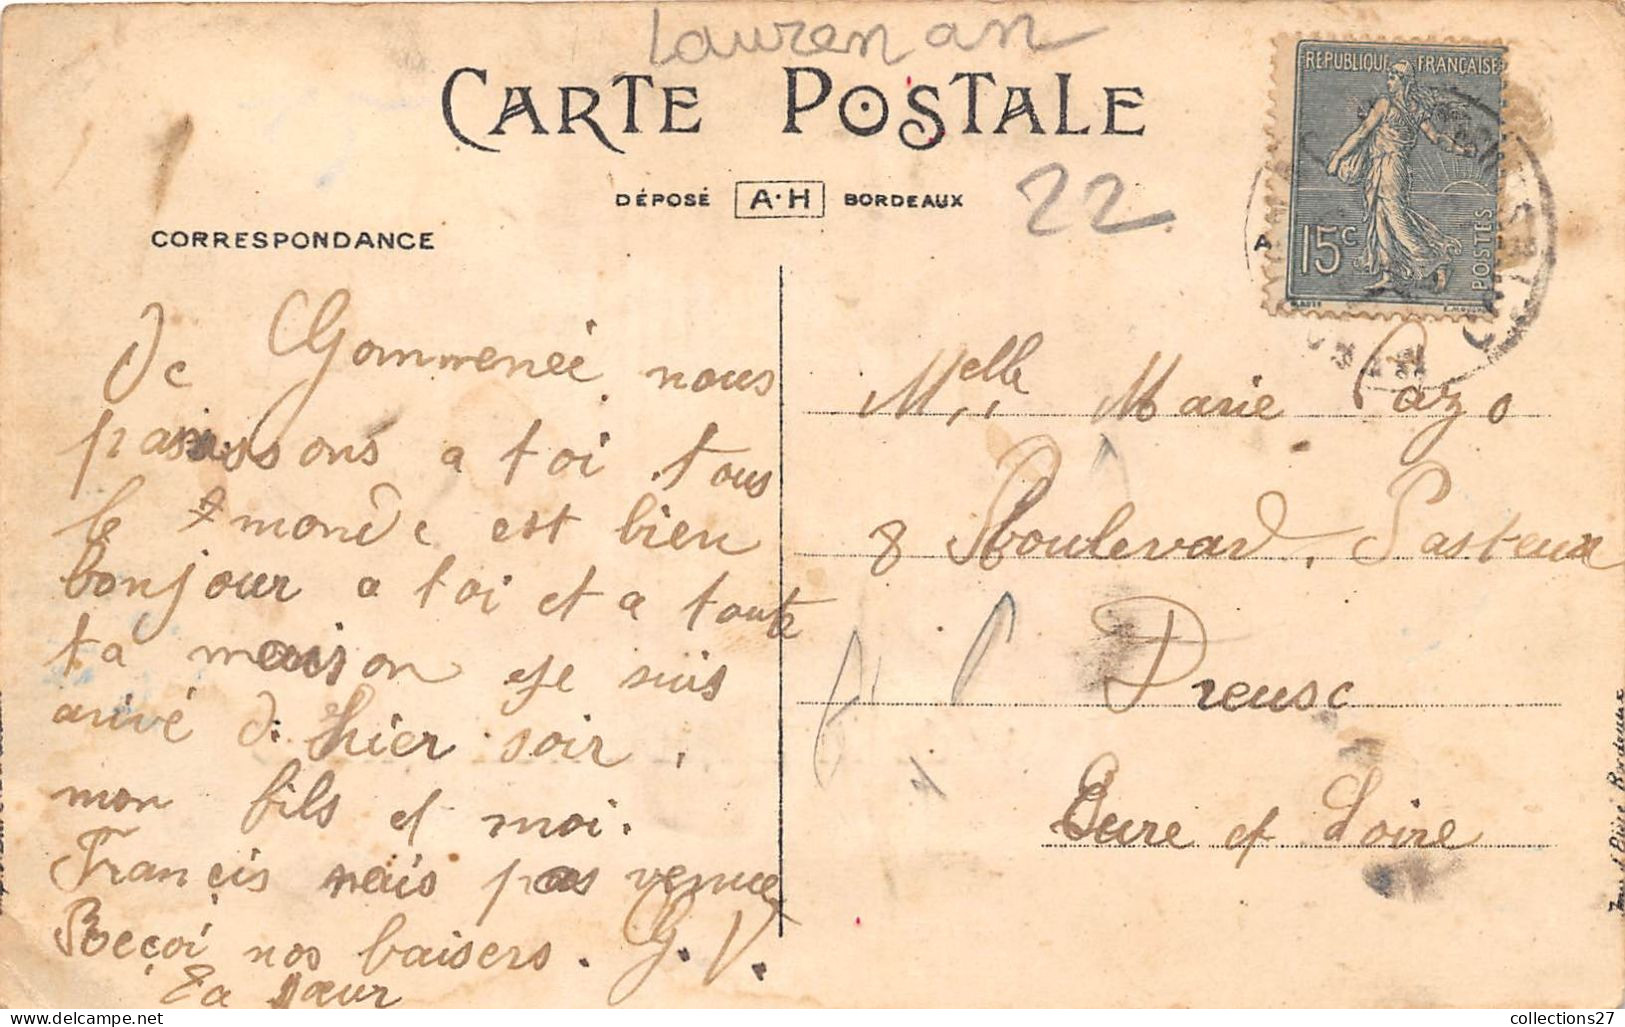 Laurenan
CARTE POSTALE
DÉPOSÉ A·H BORDEAUX
22
RÉPUBLIQUE FRANÇAISE
15c
POSTES
CORRESPONDANCE
De Gommenée nous
passons a toi tous
le monde est bien
bonjour a toi et a toute
ta maison je suis
arivé d. hier soir,
mon fils et moi.
Françis nais pas venue
Reçoi nos baisers. G. V.
Ta sœur
Melle Marie Cazo
8 Boulevard, Pasteur
Dreuse
Eure et Loire
collections27